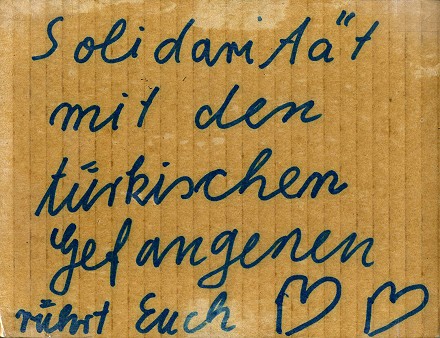 Solidarität
mit den
türkischen
Gefangenen
rührt Euch